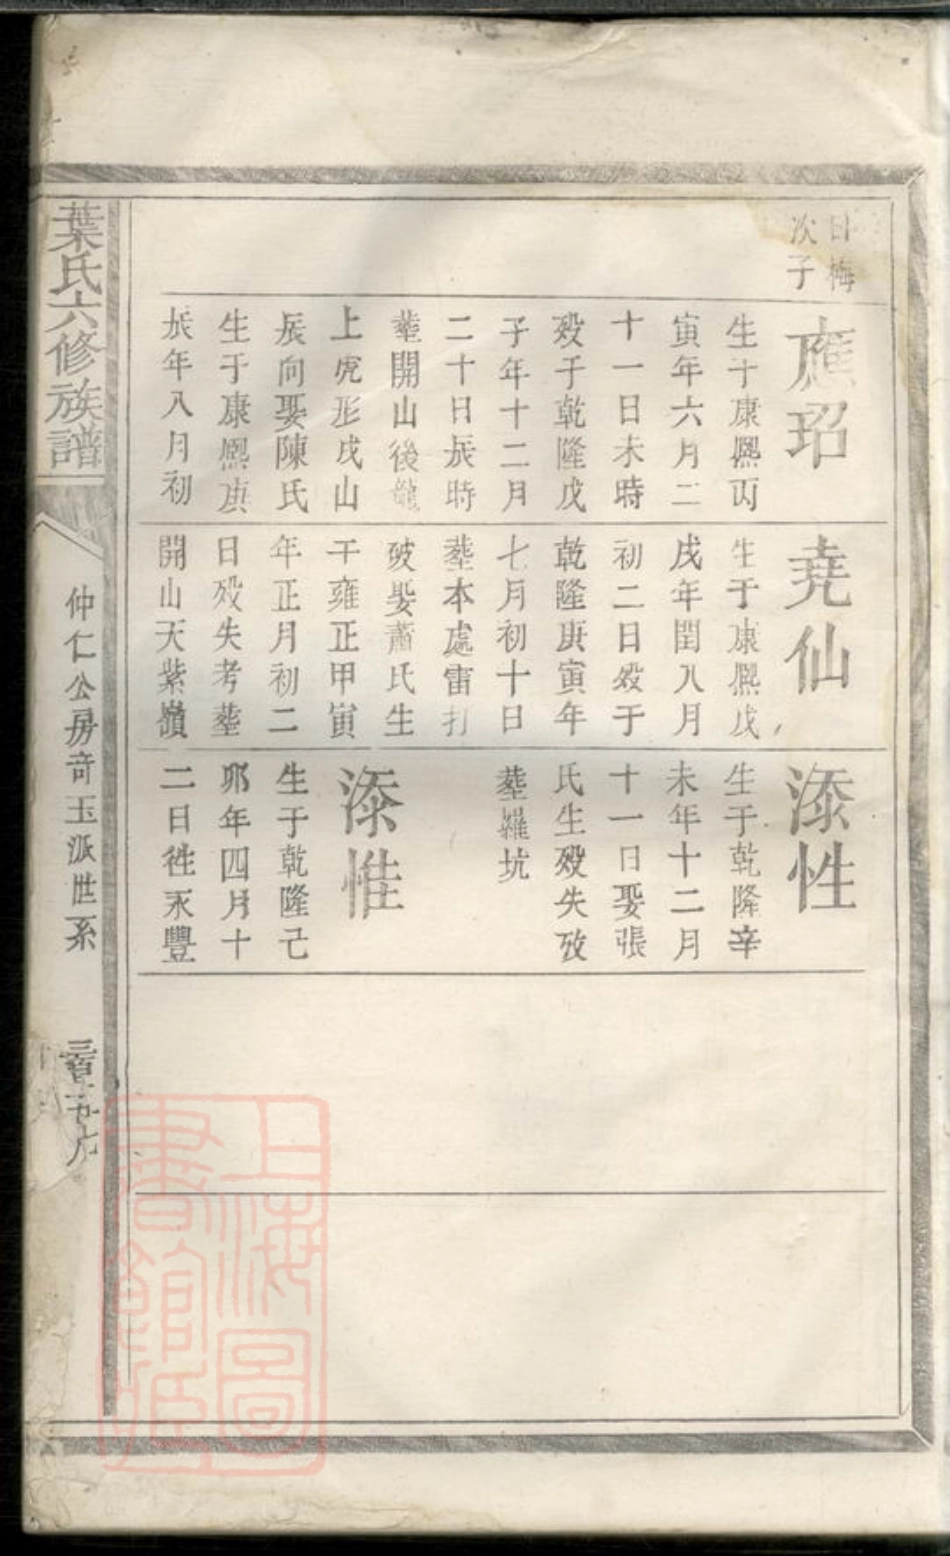 日梅
次子
應玿
生于康熈丙
寅年六月二
十一日未時
殁于乾隆戊
子年十二月
二十日辰時
塟開山後龍
上虎形戌山
辰向娶陳氏
生于康熈庚
辰年八月初
堯仙
生于康熈戊
戌年閏八月
初二日殁于
乾隆庚寅年
七月初十日
塟本處雷打
破娶蕭氏生
于雍正甲寅
年正月初二
日殁失考塟
開山天紫嶺
添性
生于乾隆辛
未年十二月
十一日娶張
氏生殁失攷
塟羅坑
添惟
生于乾隆己
夘年四月十
二日徃永豐
葉氏六修族譜
仲仁公房奇玉派世系
上海圖
書館藏